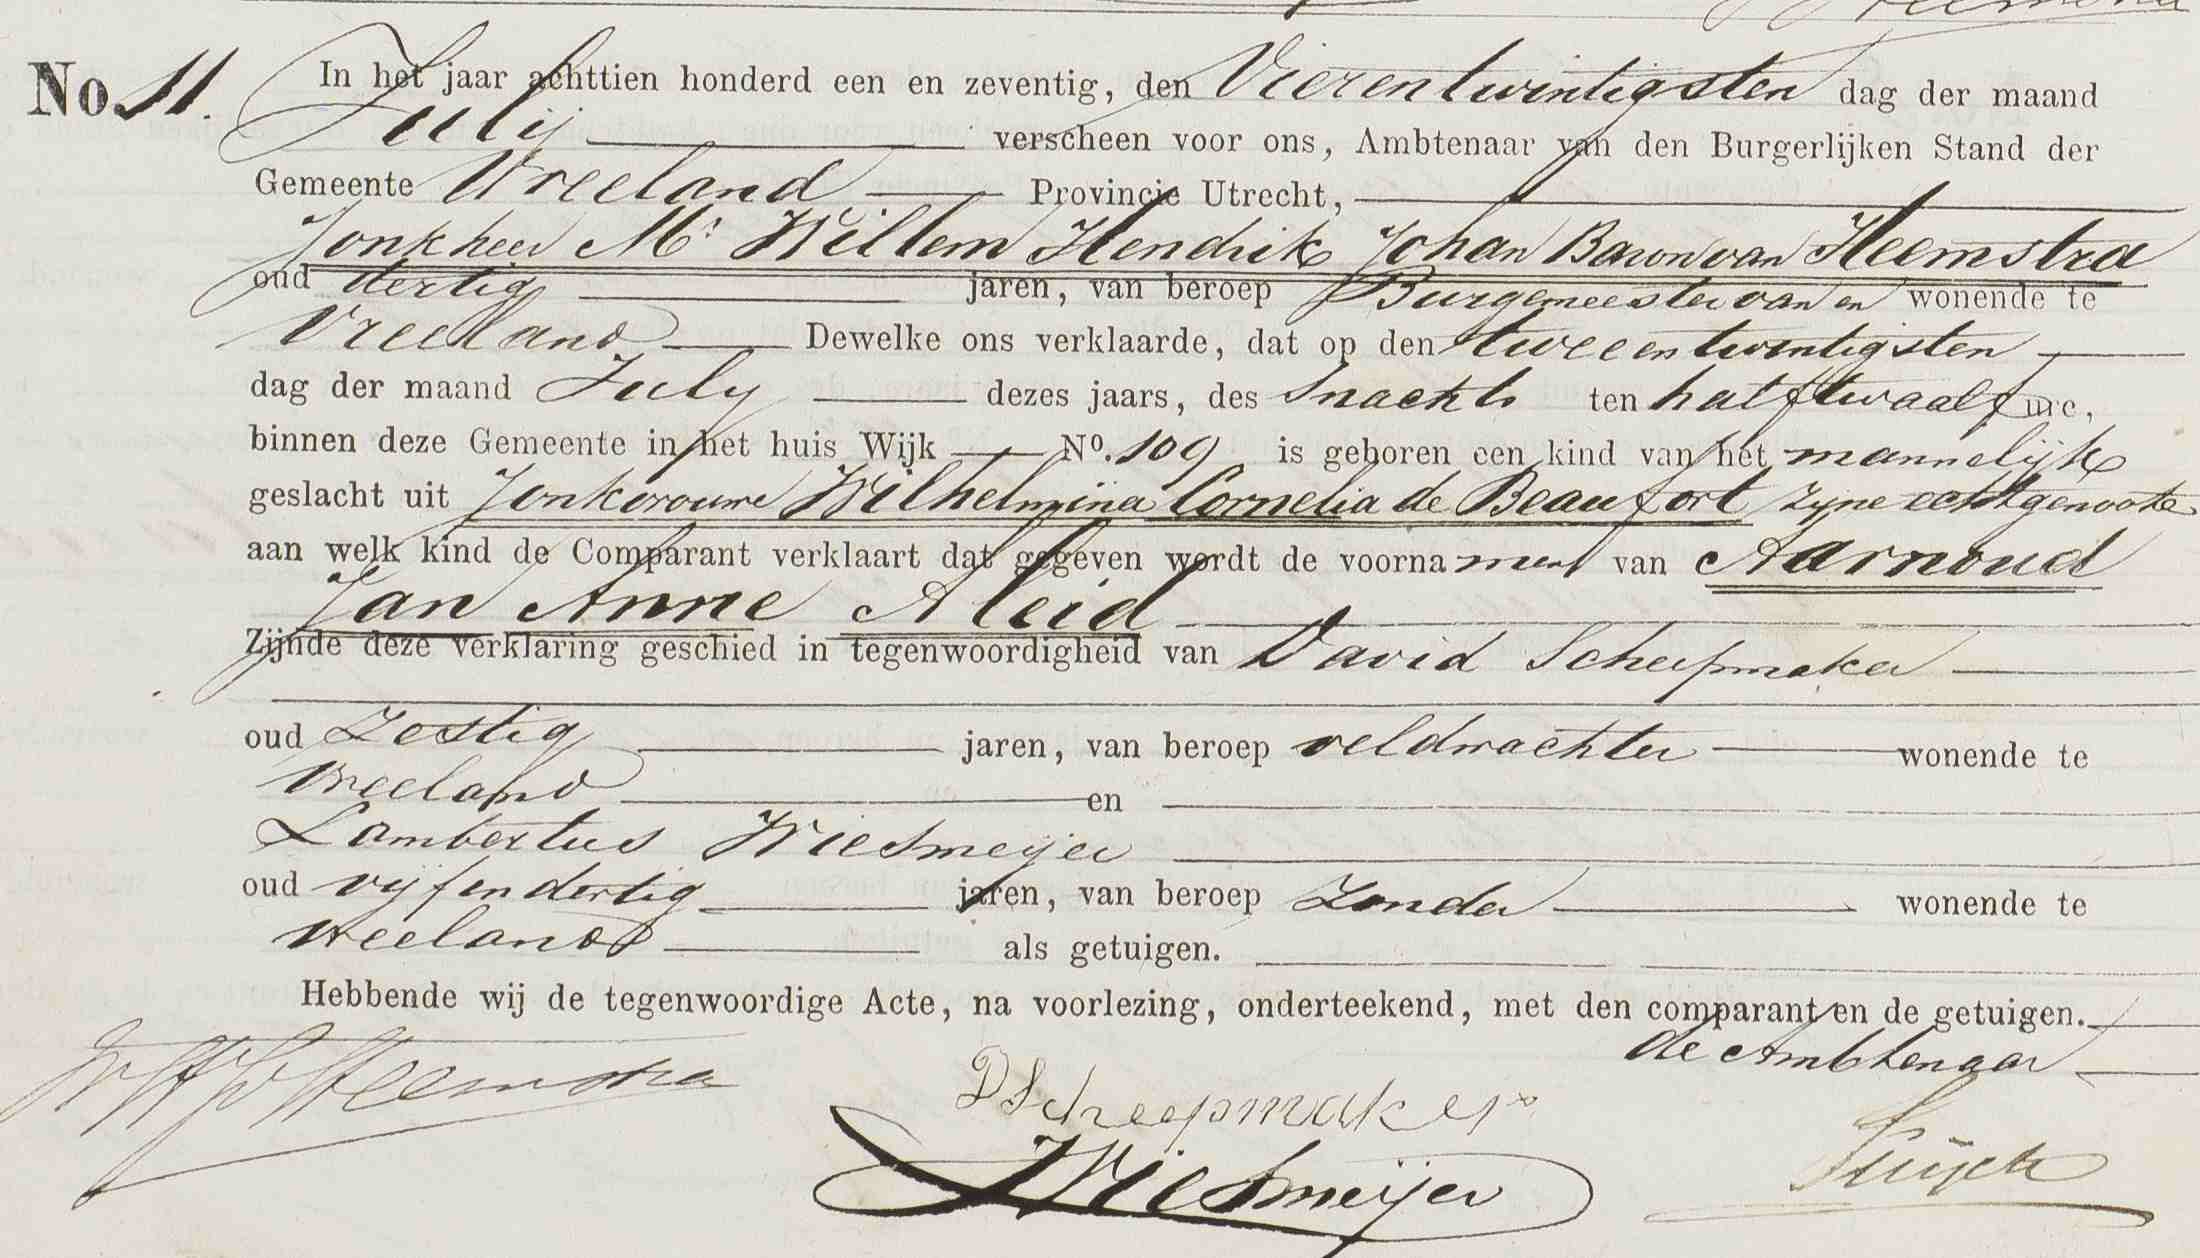 No. 11. In het jaar achttien honderd een en zeventig, den Vierentwintigsten dag der maand
July verscheen voor ons, Ambtenaar van den Burgerlijken Stand der
Gemeente Vreeland Provincie Utrecht,
Jonkheer Mr Willem Hendrik Johan Baron van Heemstra
oud dertig jaren, van beroep Burgemeester van en wonende te
Vreeland Dewelke ons verklaarde, dat op den tweeentwintigsten
dag der maand July dezes jaars, des snachts ten halftwaalf ure,
binnen deze Gemeente in het huis Wijk No. 109 is geboren een kind van het mannelijk
geslacht uit Jonkvrouwe Wilhelmina Cornelia de Beaufort zijne echtgenoote
aan welk kind de Comparant verklaart dat gegeven wordt de voornamen van Aarnoud
Jan Anne Aleid
Zijnde deze verklaring geschied in tegenwoordigheid van David Scheepmaker
oud Zestig jaren, van beroep veldwachter wonende te
Vreeland en
Lambertus Wiesmeijer
oud vijfendertig jaren, van beroep Zonder wonende te
Vreeland als getuigen.
Hebbende wij de tegenwoordige Acte, na voorlezing, onderteekend, met den comparant en de getuigen.
de Ambtenaar
WHJvHeemstra
D Scheepmaker
Wiesmeijer